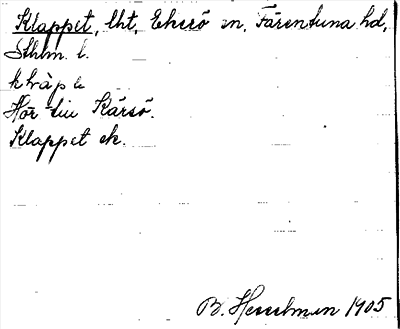 Klappet, lht, Ekerö sn, Färentuna hd,
Sthlm. l.
Hör till Kärsö.
Klappet ek.
B. Hesselman 1905